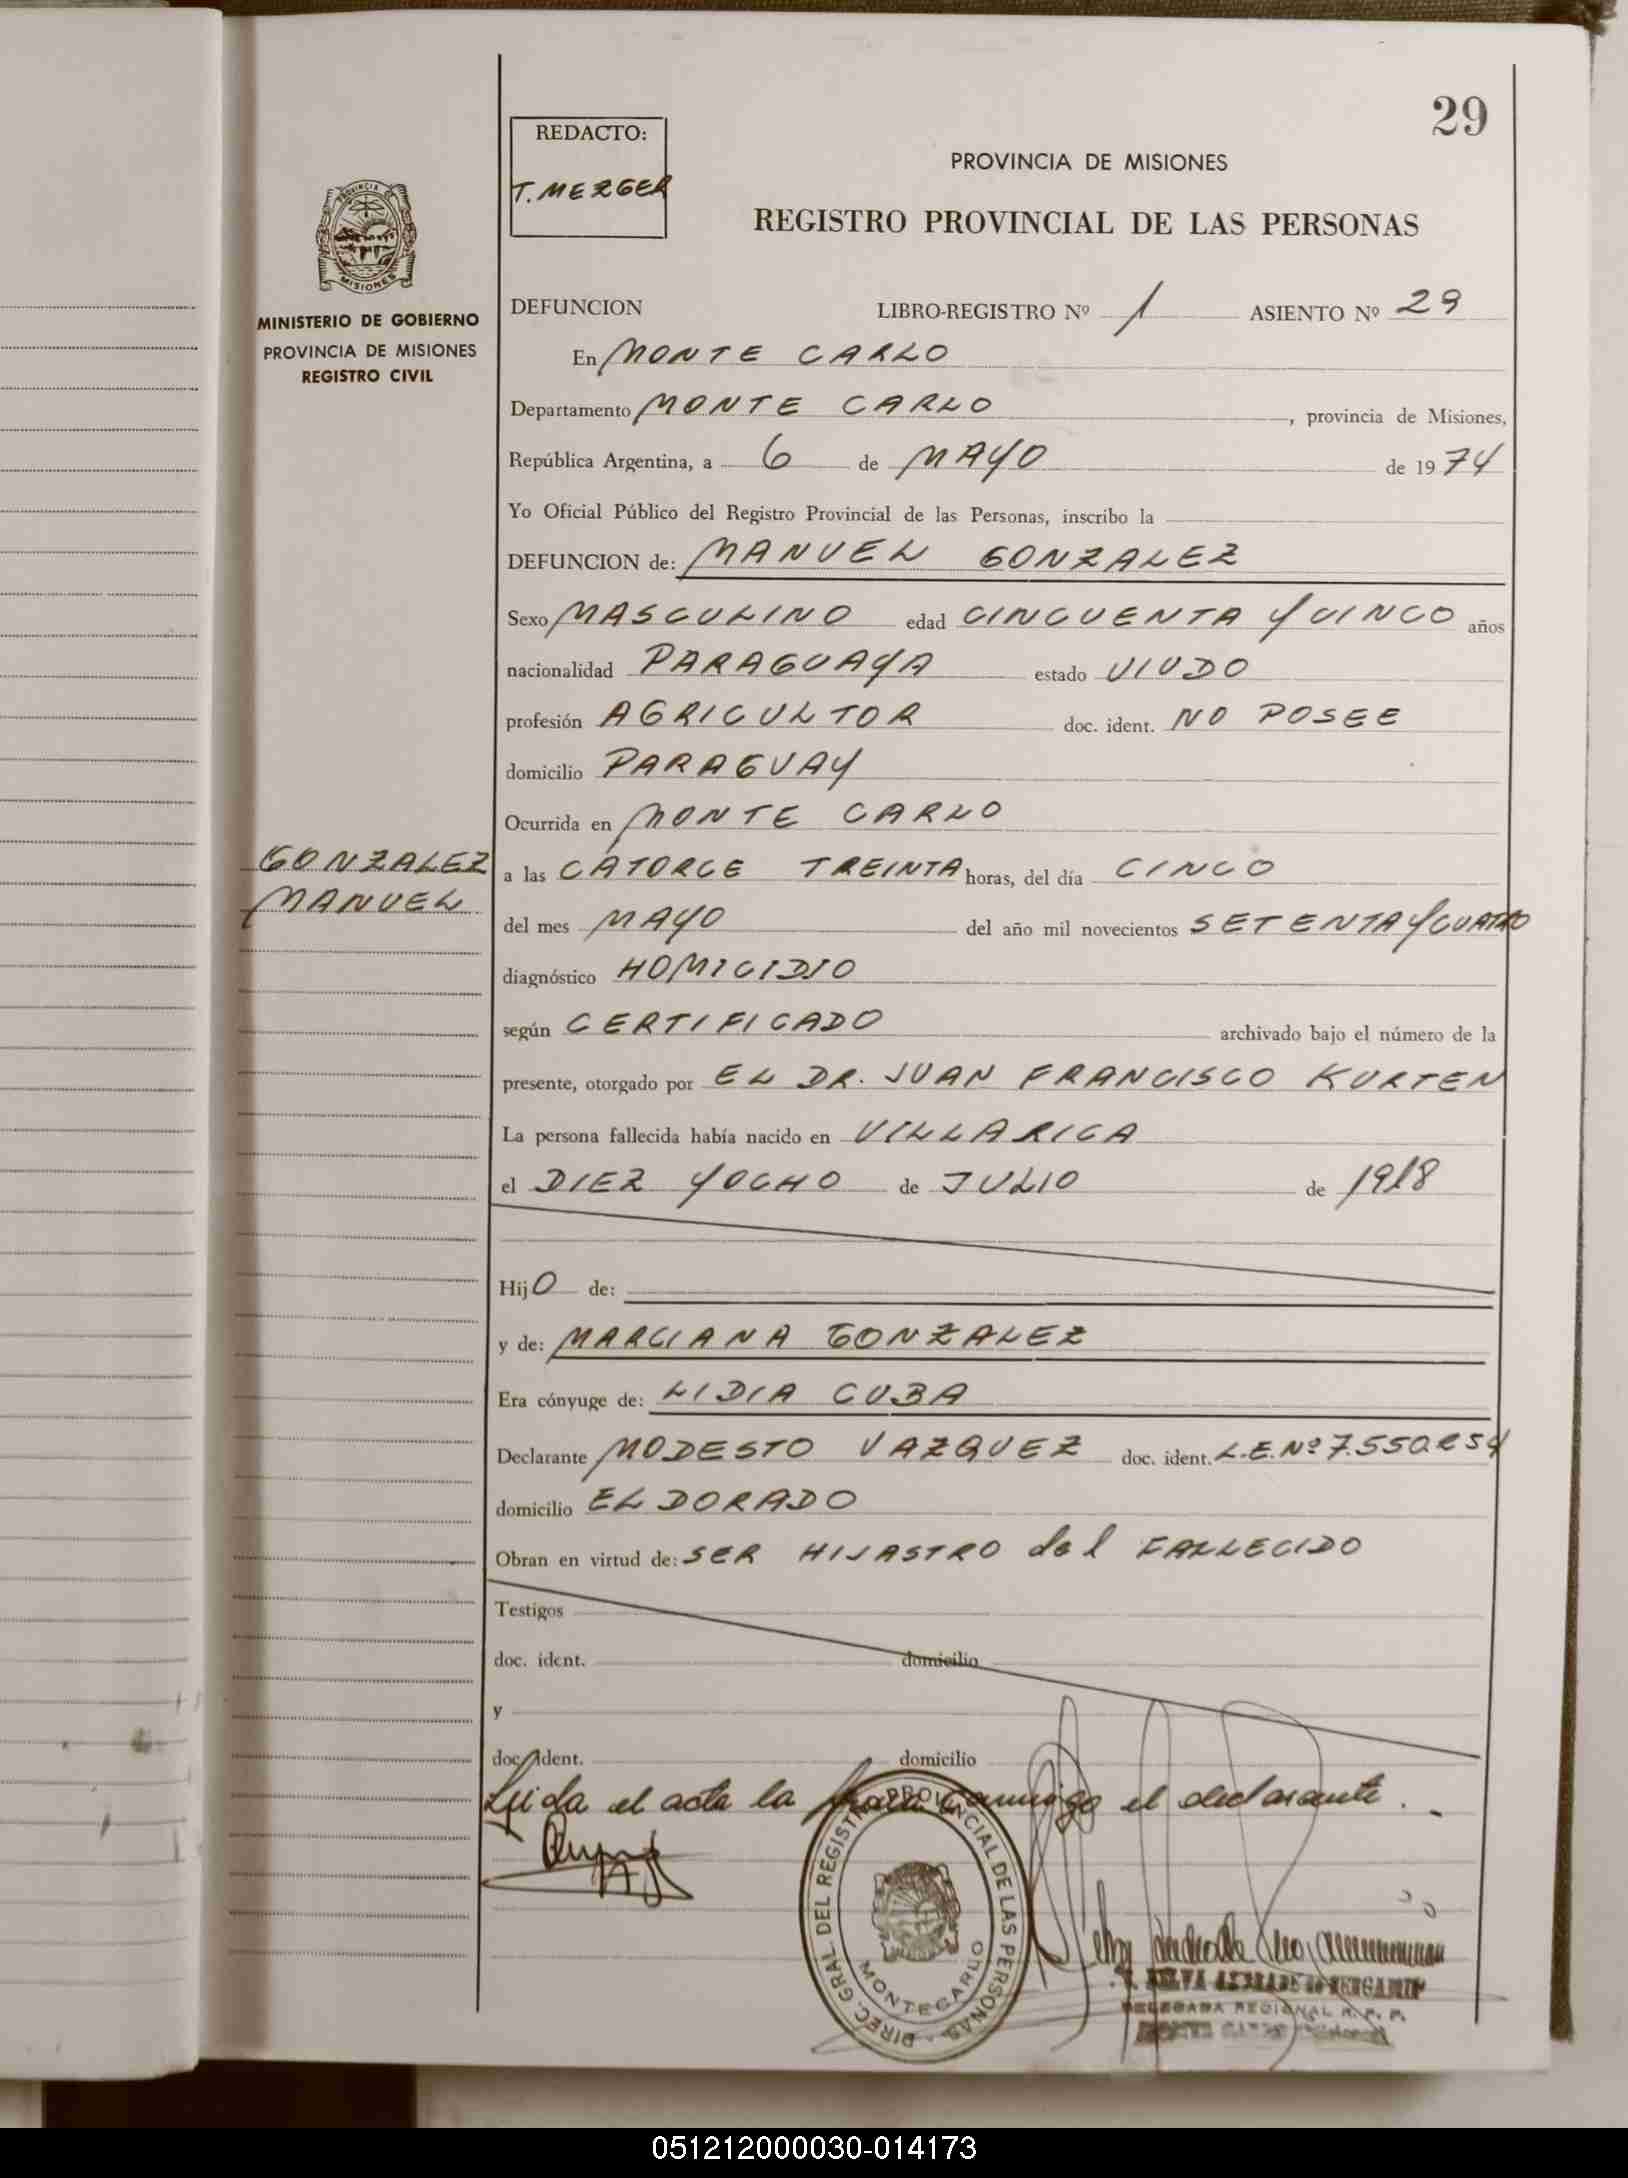 29
REDACTO:
T. MEZGER
PROVINCIA DE MISIONES
REGISTRO PROVINCIAL DE LAS PERSONAS
PROVINCIA DE
MISIONES
MINISTERIO DE GOBIERNO
PROVINCIA DE MISIONES
REGISTRO CIVIL
DEFUNCION LIBRO-REGISTRO Nº 1 ASIENTO Nº 29
En MONTE CARLO
Departamento MONTE CARLO, provincia de Misiones,
República Argentina, a 6 de MAYO de 1974
Yo Oficial Público del Registro Provincial de las Personas, inscribo la
DEFUNCION de: MANUEL GONZALEZ
Sexo MASCULINO edad CINCUENTA Y CINCO años
nacionalidad PARAGUAYA estado VIUDO
profesión AGRICULTOR doc. ident. NO POSEE
domicilio PARAGUAY
Ocurrida en MONTE CARLO
GONZALEZ
MANUEL
a las CATORCE TREINTA horas, del día CINCO
del mes MAYO del año mil novecientos SETENTA Y CUATRO
diagnóstico HOMICIDIO
según CERTIFICADO archivado bajo el número de la
presente, otorgado por EL DR. JUAN FRANCISCO KURTEN
La persona fallecida había nacido en VILLARICA
el DIEZ Y OCHO de JULIO de 1918
Hijo de:
y de: MARCIANA GONZALEZ
Era cónyuge de: LIDIA CUBA
Declarante MODESTO VAZQUEZ doc. ident. L.E. Nº 7.550.254
domicilio ELDORADO
Obran en virtud de: SER HIJASTRO del FALLECIDO
Testigos
doc. ident. domicilio
y
doc. ident. domicilio
Leida el acta la firma conmigo el declarante.-
DIREC. GRAL DEL REGISTRO PROVINCIAL DE LAS PERSONAS
MONTECARLO
DELEGADA REGIONAL R. P. P.
051212000030-014173